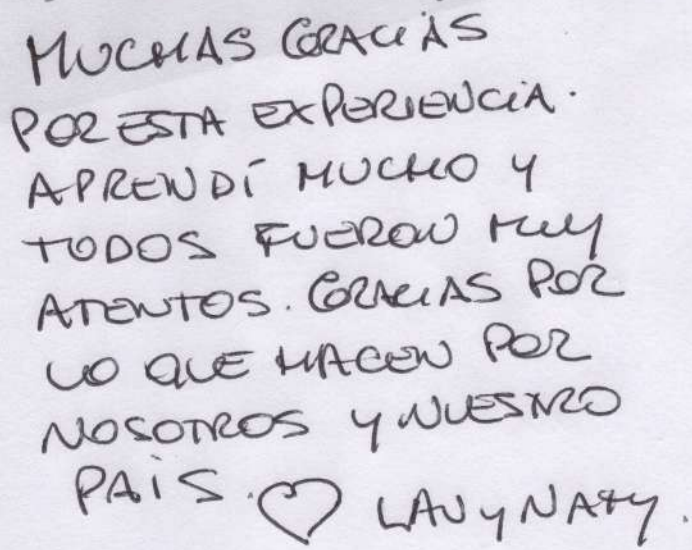 MUCHAS GRACIAS
POR ESTA EXPERIENCIA.
APRENDÍ MUCHO Y
TODOS FUERON MUY
ATENTOS. GRACIAS POR
LO QUE HACEN POR
NOSOTROS Y NUESTRO
PAÍS. ♡ LAU y NATY.